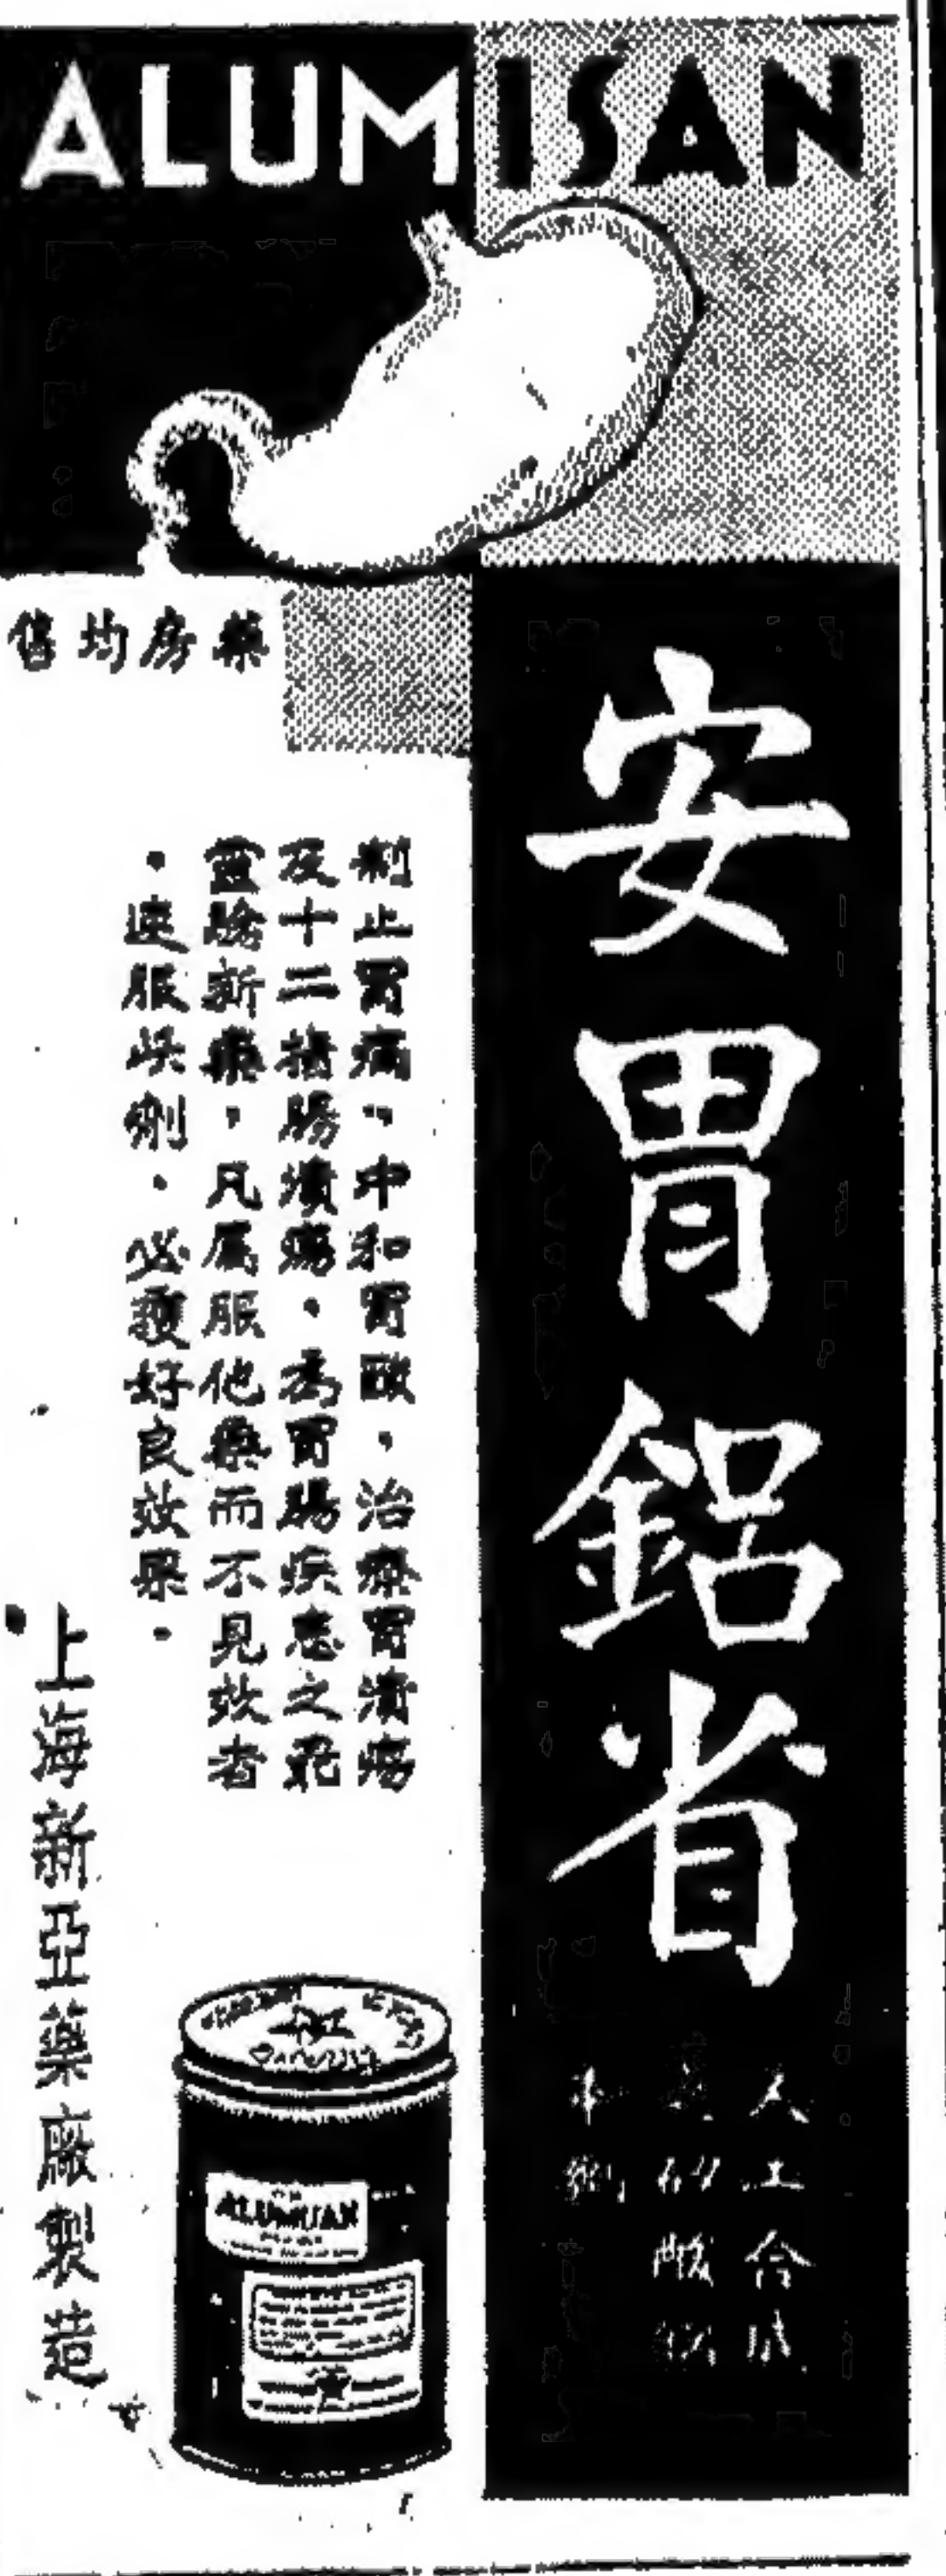 ALUMISAN
安胃鋁省
人工合成
矽酸鋁
藥房均售
制止胃痛、中和胃酸,治療胃潰瘍
及十二指腸潰瘍。為胃腸疾患之
靈驗新藥,凡属服他藥而不見效者
。速服此劑。必獲好良效果。
上海新亞藥廠製造
ALUMISAN